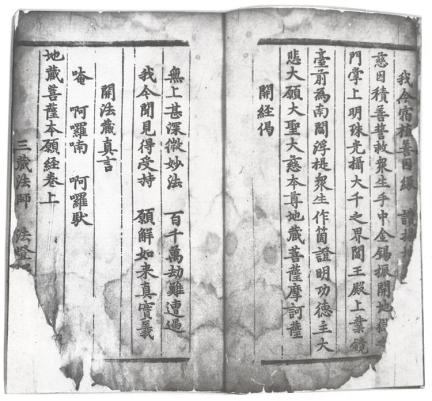 我今宿植善因緣 讚揚
慈因積善誓救衆生手中金錫振開地獄
門掌上明珠光攝大千之界閻王殿上業鏡
臺前爲南閻浮提衆生作箇證明功德主大
悲大願大聖大慈本尊地藏菩薩摩訶薩
開經偈
無上甚深微妙法 百千萬劫難遭遇
我今聞見得受持 願解如来真實義
開法藏真言
唵 阿羅喃 阿羅馱
地藏菩薩本願經卷上
三藏法師 法